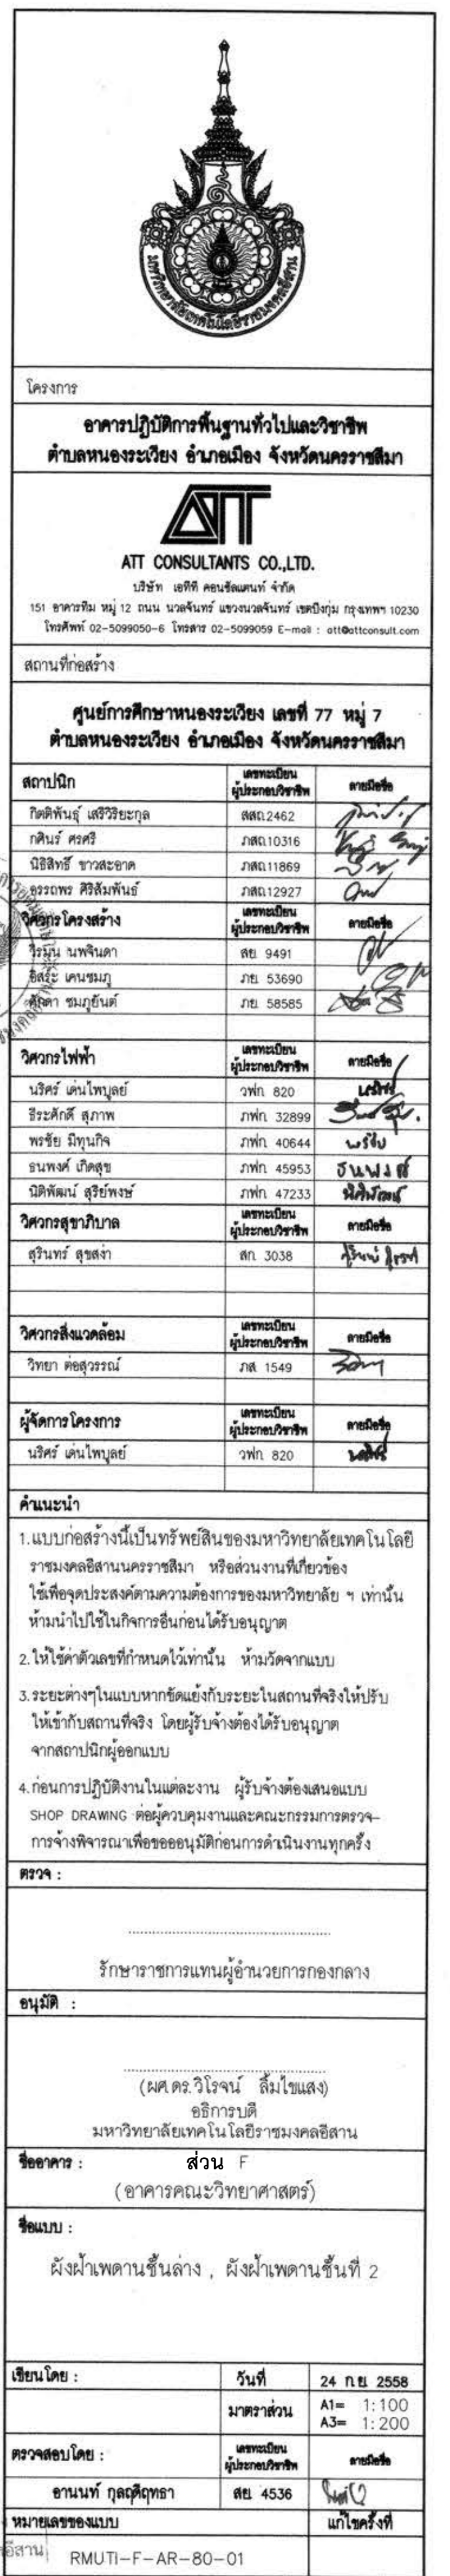 มหาวิทยาลัยเทคโนโลยีราชมงคลอีสาน
โครงการ
อาคารปฏิบัติการพื้นฐานทั่วไปและวิชาชีพ
ตำบลหนองระเวียง อำเภอเมือง จังหวัดนครราชสีมา
ATT
ATT CONSULTANTS CO.,LTD.
บริษัท เอทีที คอนซัลแตนท์ จำกัด
151 อาคารทีม หมู่ 12 ถนน นวลจันทร์ แขวงนวลจันทร์ เขตบึงกุ่ม กรุงเทพฯ 10230
โทรศัพท์ 02-5099050-6 โทรสาร 02-5099059 E-mail : att@attconsult.com
สถานที่ก่อสร้าง
ศูนย์การศึกษาหนองระเวียง เลขที่ 77 หมู่ 7
ตำบลหนองระเวียง อำเภอเมือง จังหวัดนครราชสีมา
สถาปนิก เลขทะเบียน ผู้ประกอบวิชาชีพ ลายมือชื่อ
กิตติพันธุ์ เสรีวิริยะกุล สสถ.2462
กศินร์ ศรศรี ภสถ.10316
นิธิสิทธิ์ ขาวสะอาด ภสถ.11869
อรรถพร ศิริสัมพันธ์ ภสถ.12927
วิศวกรโครงสร้าง เลขทะเบียน ผู้ประกอบวิชาชีพ ลายมือชื่อ
นพจินดา สย. 9491
อิสระ เคนชมภู ภย. 53690
ชมภูยันต์ ภย. 58585
วิศวกรไฟฟ้า เลขทะเบียน ผู้ประกอบวิชาชีพ ลายมือชื่อ
นริศร์ เด่นไพบูลย์ วฟก. 820 นริศร์
ธีระศักดิ์ สุภาพ ภฟก. 32899
พรชัย มีทุนกิจ ภฟก. 40644 พรชัย
ธนพงศ์ เกิดสุข ภฟก. 45953 ธนพงศ์
นิติพัฒน์ สุรีย์พงษ์ ภฟก. 47233 นิติพัฒน์
วิศวกรสุขาภิบาล เลขทะเบียน ผู้ประกอบวิชาชีพ ลายมือชื่อ
สุรินทร์ สุขสง่า สก. 3038
วิศวกรสิ่งแวดล้อม เลขทะเบียน ผู้ประกอบวิชาชีพ ลายมือชื่อ
วิทยา ต่อสุวรรณ์ ภส. 1549
ผู้จัดการโครงการ เลขทะเบียน ผู้ประกอบวิชาชีพ ลายมือชื่อ
นริศร์ เด่นไพบูลย์ วฟก. 820 นริศร์
คำแนะนำ
1. แบบก่อสร้างนี้เป็นทรัพย์สินของมหาวิทยาลัยเทคโนโลยี
ราชมงคลอีสานนครราชสีมา หรือส่วนงานที่เกี่ยวข้อง
ใช้เพื่อจุดประสงค์ตามความต้องการของมหาวิทยาลัย ฯ เท่านั้น
ห้ามนำไปใช้ในกิจการอื่นก่อนได้รับอนุญาต
2. ให้ใช้ค่าตัวเลขที่กำหนดไว้เท่านั้น ห้ามวัดจากแบบ
3. ระยะต่างๆในแบบหากขัดแย้งกับระยะในสถานที่จริงให้ปรับ
ให้เข้ากับสถานที่จริง โดยผู้รับจ้างต้องได้รับอนุญาต
จากสถาปนิกผู้ออกแบบ
4. ก่อนการปฏิบัติงานในแต่ละงาน ผู้รับจ้างต้องเสนอแบบ
SHOP DRAWING ต่อผู้ควบคุมงานและคณะกรรมการตรวจ-
การจ้างพิจารณาเพื่อขออนุมัติก่อนการดำเนินงานทุกครั้ง
ตรวจ :
รักษาราชการแทนผู้อำนวยการกองกลาง
อนุมัติ :
(ผศ.ดร.วิโรจน์ ลิ้มไขแสง)
อธิการบดี
มหาวิทยาลัยเทคโนโลยีราชมงคลอีสาน
ชื่ออาคาร : ส่วน F
(อาคารคณะวิทยาศาสตร์)
ชื่อแบบ :
ผังฝ้าเพดานชั้นล่าง , ผังฝ้าเพดานชั้นที่ 2
เขียนโดย : วันที่ 24 ก.ย. 2558
มาตราส่วน A1= 1:100
A3= 1:200
ตรวจสอบโดย : เลขทะเบียน ผู้ประกอบวิชาชีพ ลายมือชื่อ
อานนท์ กุลฤดีฤทธา สย. 4536
หมายเลขของแบบ แก้ไขครั้งที่
อีสาน RMUTI-F-AR-80-01